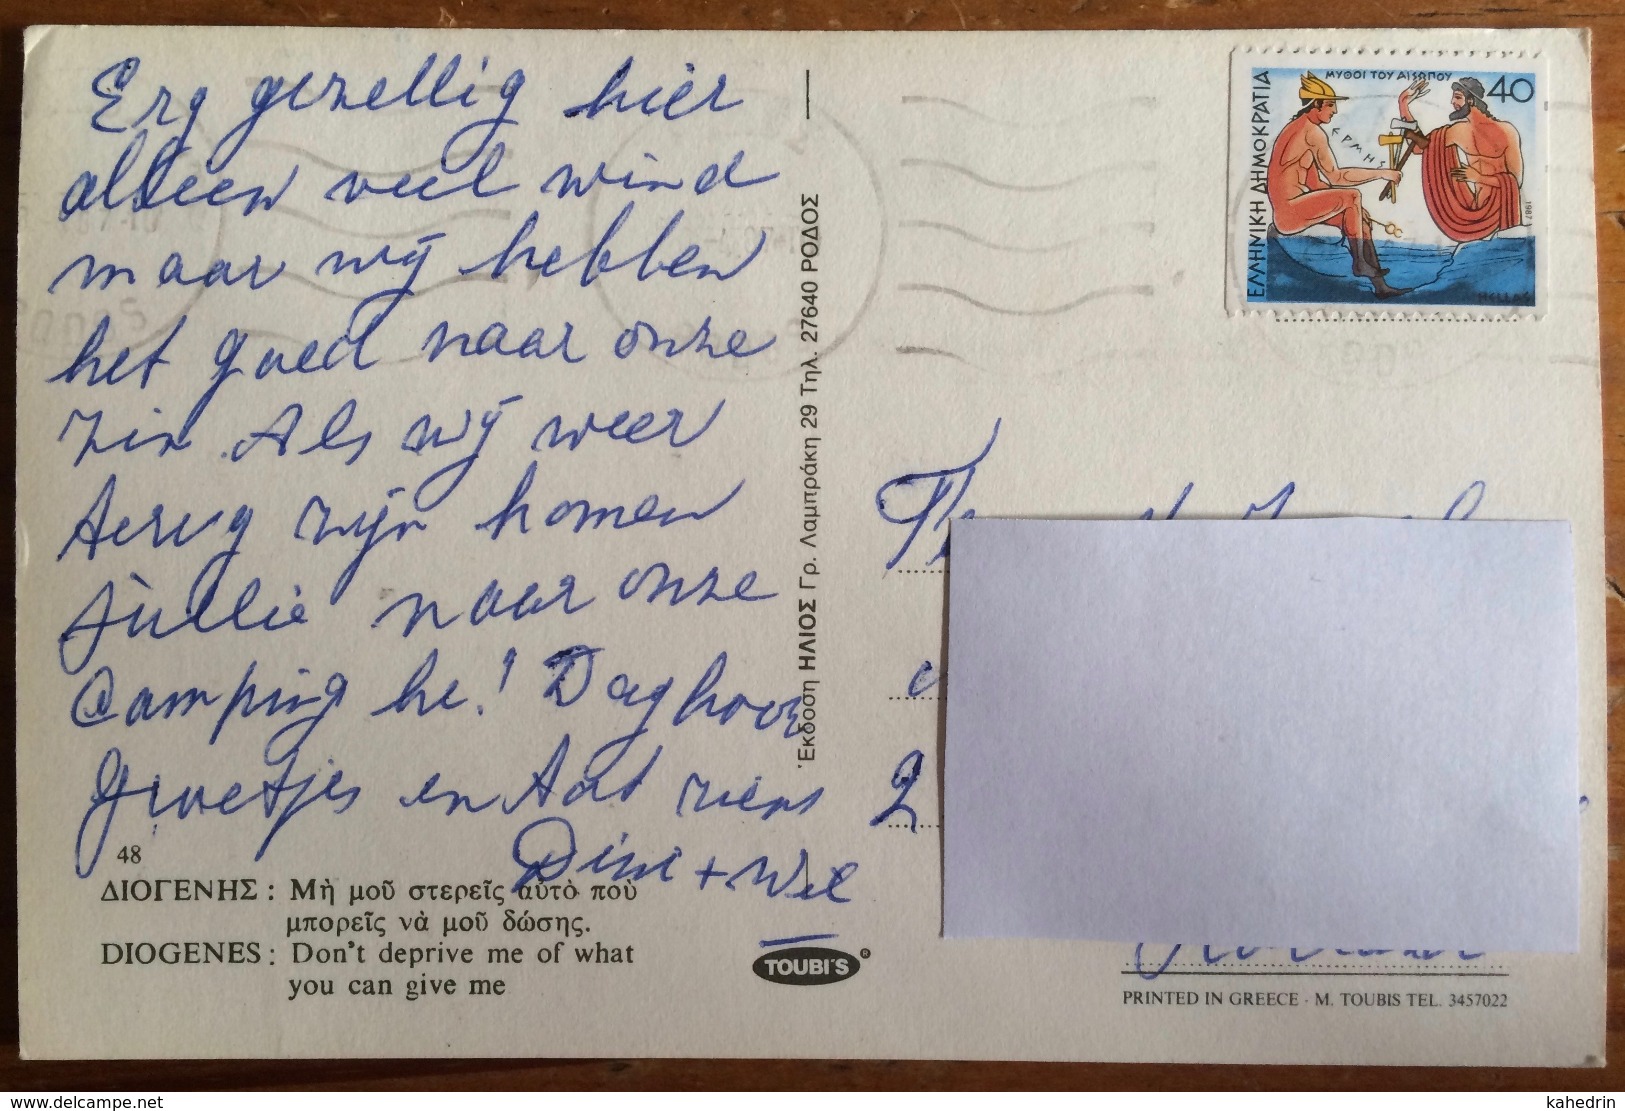 Erg gezellig hier
alleen veel wind
maar wij hebben
het goed naar onze
zin Als wij weer
terug zijn komen
jullie naar onze
Camping he! Dag hoor
Groetjes en tot ziens
Dini + Wil
48
ΔΙΟΓΕΝΗΣ: Μὴ μοῦ στερεῖς αὐτὸ ποὺ
μπορεῖς νὰ μοῦ δώσης.
DIOGENES: Don't deprive me of what
you can give me
Ἔκδοση ΗΛΙΟΣ Γρ. Λαμπράκη 29 Τηλ. 27640 ΡΟΔΟΣ
TOUBI'S ®
ΜΥΘΟΙ ΤΟΥ ΑΙΣΩΠΟΥ
40
ΕΛΛΗΝΙΚΗ ΔΗΜΟΚΡΑΤΙΑ
ΕΡΜΗΣ
1987
HELLAS
2
PRINTED IN GREECE - M. TOUBIS TEL. 3457022
www.delcampe.net
kahedrin